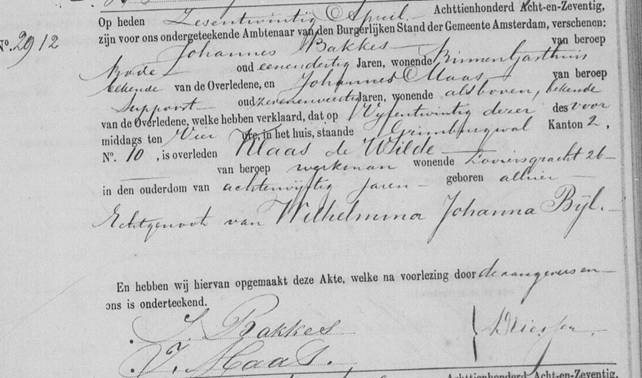 Op heden Zesentwintig April Achttienhonderd Acht-en-Zeventig,
zijn voor ons ondergeteekende Ambtenaar van den Burgerlijken Stand der Gemeente Amsterdam, verschenen:
No. 2912
Johannes Bakkes van beroep
Bode oud eenendertig Jaren, wonende Binnen Gasthuis
bekende van de Overledene, en Johannes Maas van beroep
Suppoost oud zevenenveertig Jaren, wonende alsboven, bekende
van de Overledene, welke hebben verklaard, dat op Vijfentwintig dezer des voor
middags ten Vier ure, in het huis, staande Grimburgwal Kanton 2,
No. 10, is overleden Klaas de Wilde
van beroep werkman wonende Looiersgracht 26
in den ouderdom van achtenvijftig Jaren geboren alhier
Echtgenoot van Wilhelmina Johanna Bijl.
En hebben wij hiervan opgemaakt deze Akte, welke na voorlezing door de aangevers en
ons is onderteekend.
J. Bakkes
J. Maas.
Achttienhonderd Acht-en-Zeventig,